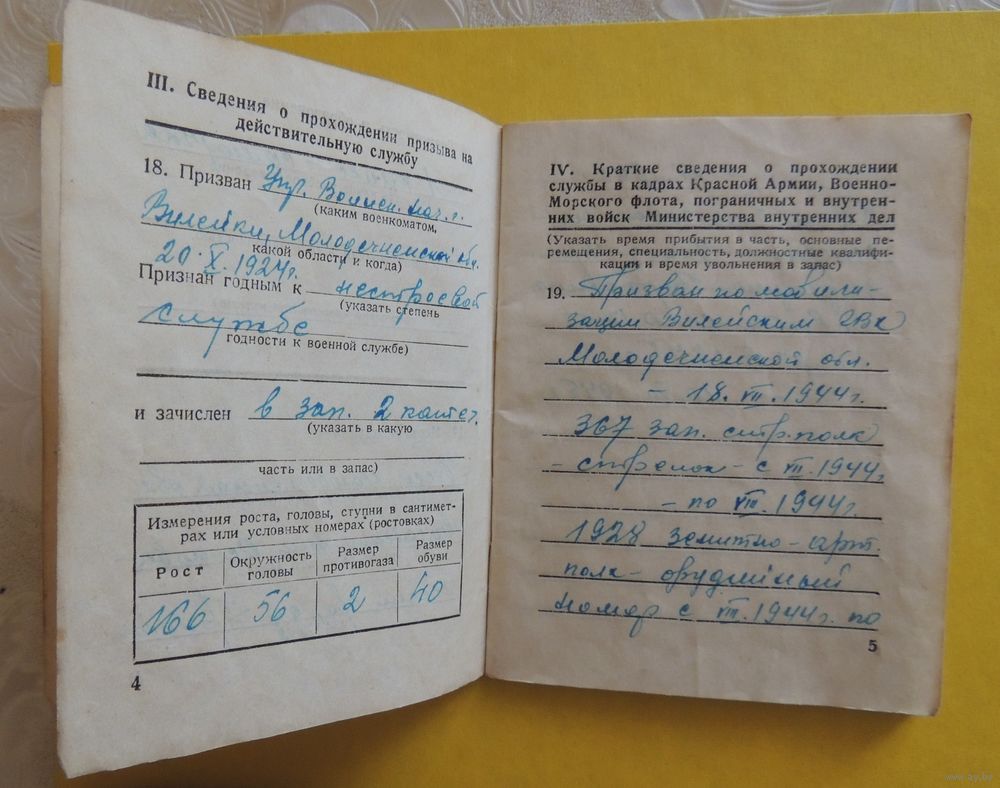 III. Сведения о прохождении призыва на
действительную службу
18. Призван
(каким военкоматом,
Вилейки, Молодечненской обл.
какой области и когда)
20. X. 1924г.
Признан годным к нестроевой
(указать степень
службе
годности к военной службе)
и зачислен в зап. 2 катег.
(указать в какую
часть или в запас)
Измерения роста, головы, ступни в сантимет-
рах или условных номерах (ростовках)
Рост Окружность головы Размер противогаза Размер обуви
166 56 2 40
4
IV. Краткие сведения о прохождении
службы в кадрах Красной Армии, Военно-
Морского флота, пограничных и внутрен-
них войск Министерства внутренних дел
(Указать время прибытия в часть, основные пе-
ремещения, специальность, должностные квалифи-
кации и время увольнения в запас)
19. Призван по мобили-
зации Вилейским ГВК
Молодечненской обл.
- 18. VII. 1944г.
367 зап. стр. полк
- стрелок - с VII. 1944г.
- по VIII. 1944г.
1928 зенитно-арт.
полк - орудийный
номер с VIII. 1944г. по
5
www.ay.by